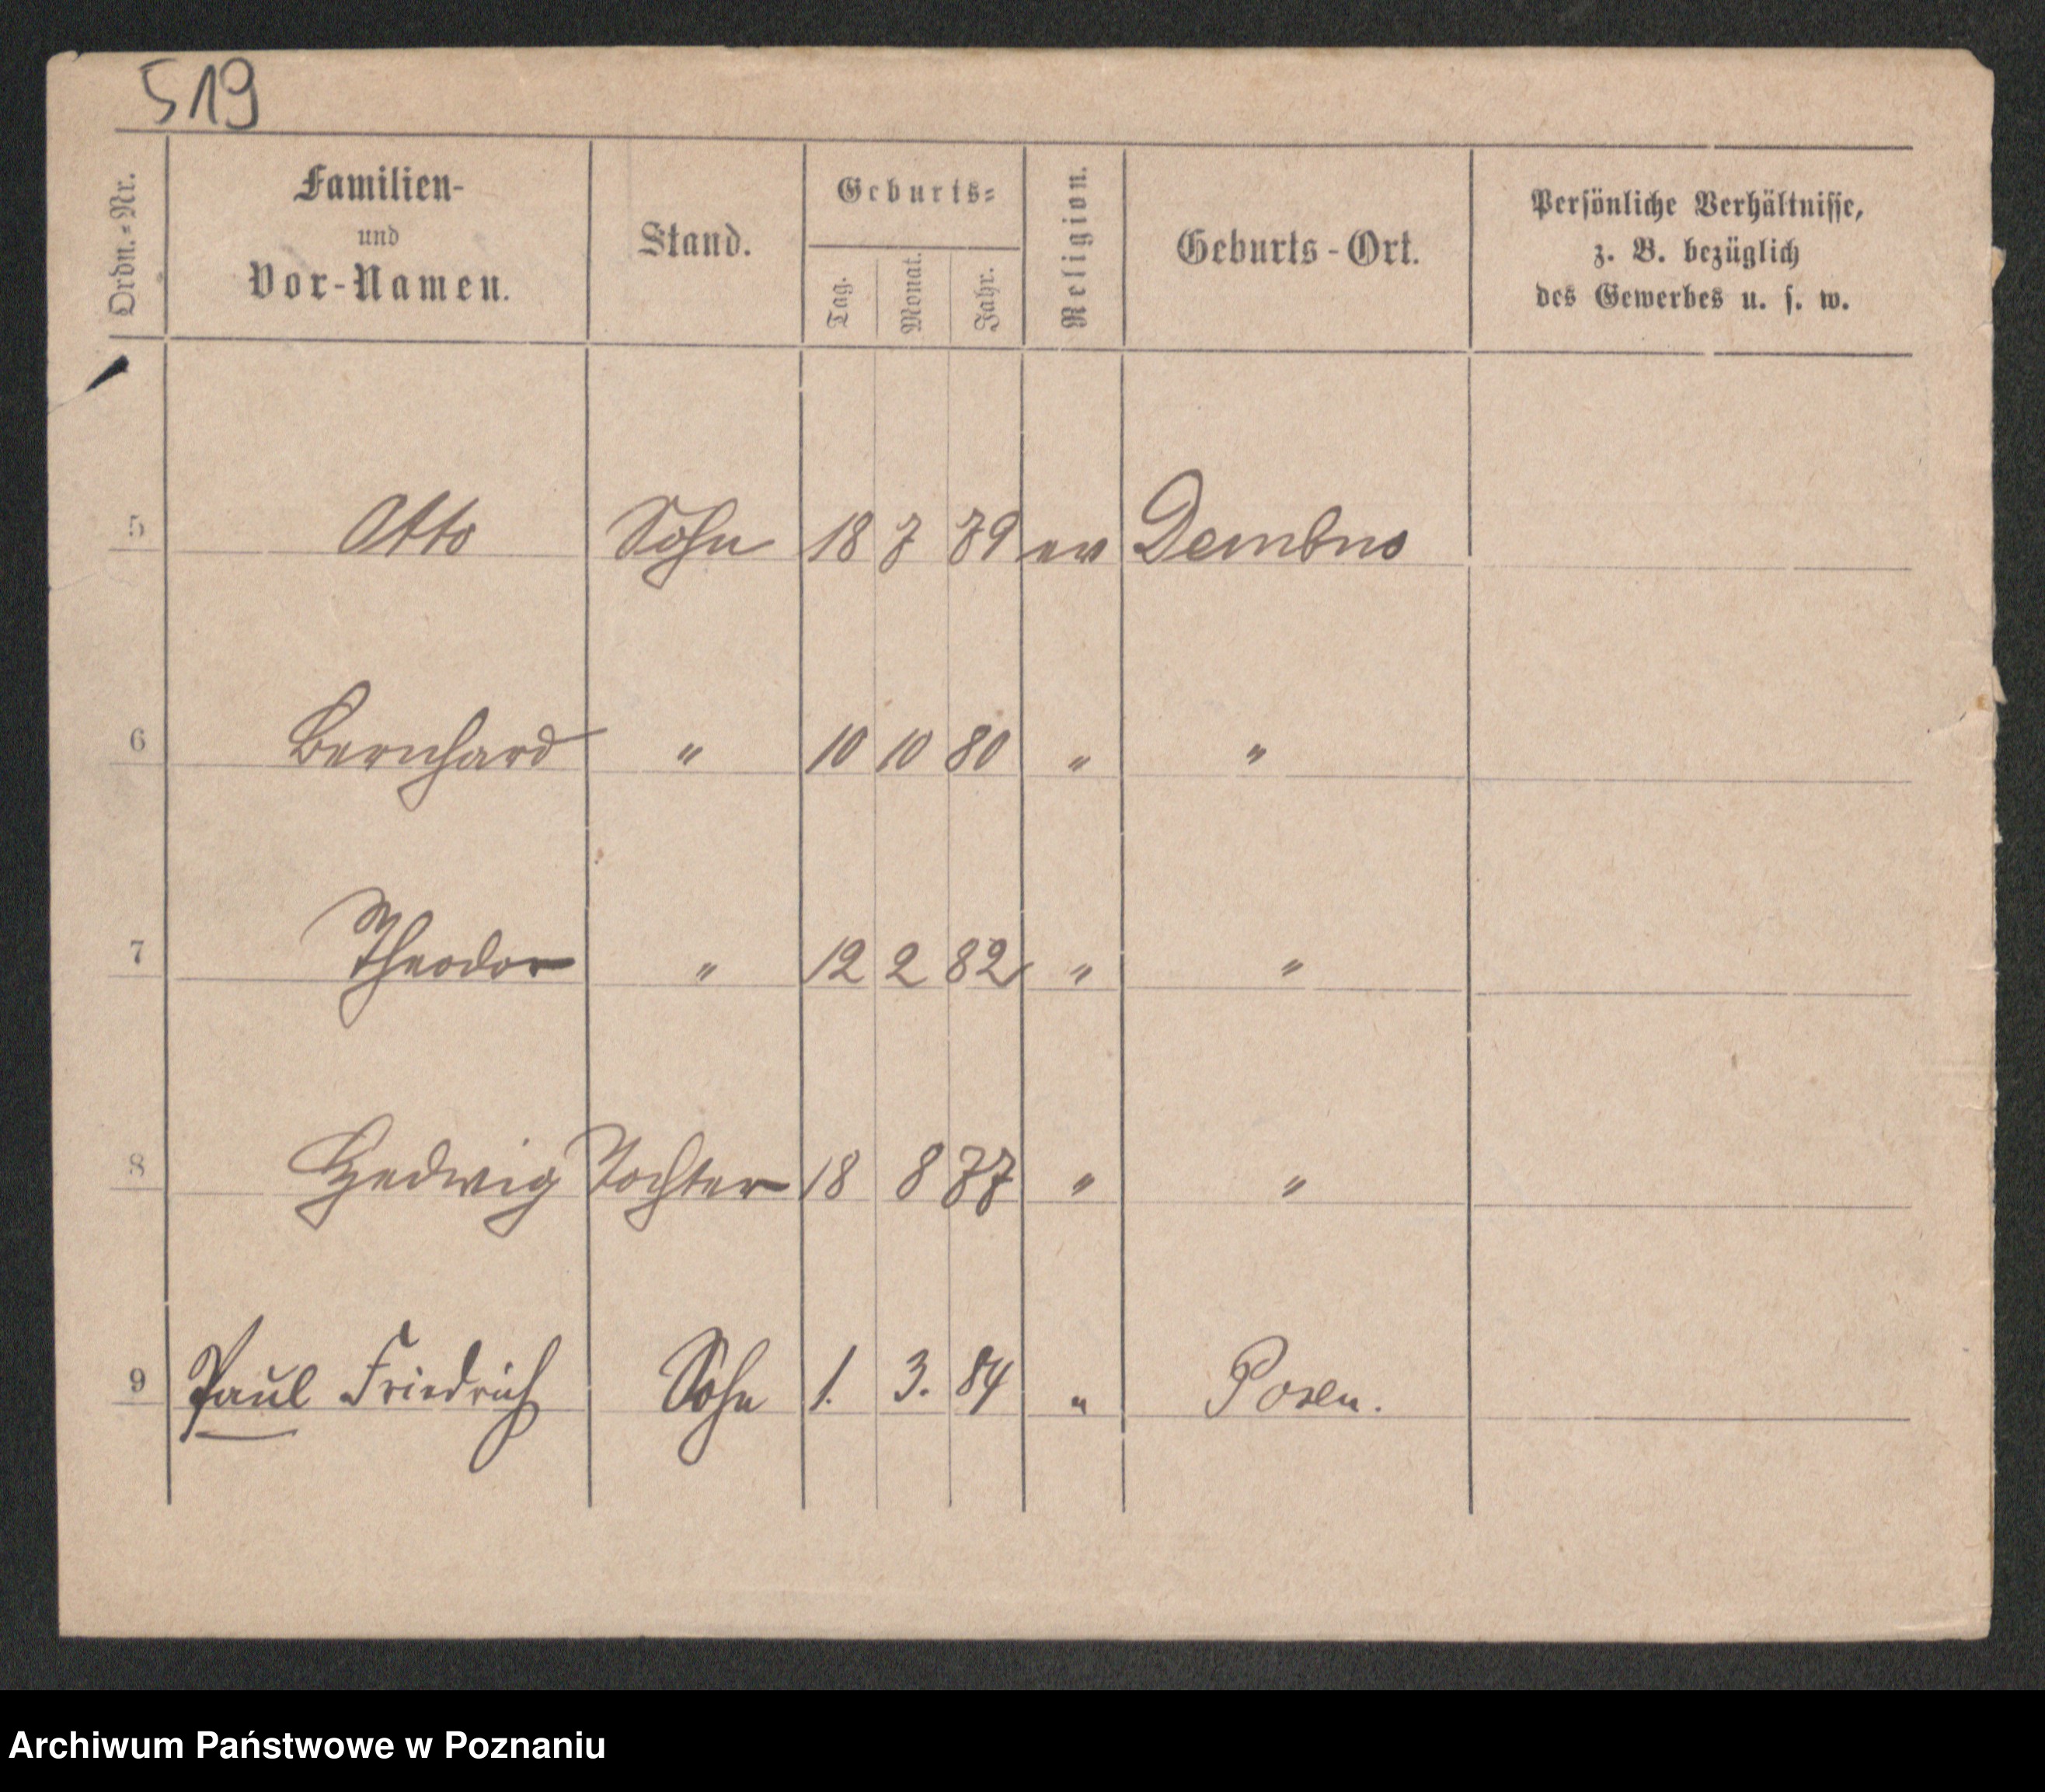 519
Ordn.-Nr.
Familien-
und
Vor-Namen.
Stand.
Geburts-
Tag.
Monat.
Jahr.
Religion.
Geburts-Ort.
Persönliche Verhältnisse,
z. B. bezüglich
des Gewerbes u. s. w.
5 Otto Sohn 18 7 79 ev Dembno
6 Bernhard " 10 10 80 " "
7 Theodor " 12 2 82 " "
8 Hedwig Tochter 18 8 77 " "
9 Paul Friedrich Sohn 1. 3. 84 " Posen.
Archiwum Państwowe w Poznaniu